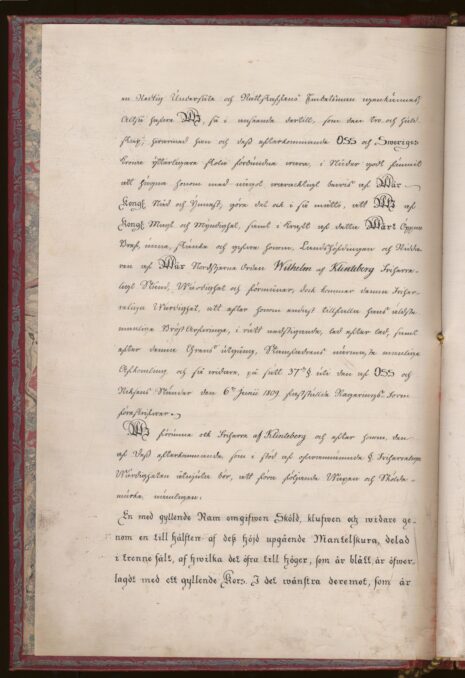 en Redlig Undersåte och Rättskaffens Embetsman egenkännes;
Altså hafve Wi, så i anseende dertill, som den tro och huld-
skap, hwarmed han och dess efterkommande OSS och Sweriges
Krona ytterligare skola förbundne wara, i Nåder godt funnit
att hugna honom med något waracktigt bewis af Wår
Kongl. Nåd och Ynnest; göre det och i så måtto, att Wi af
Kongl. Magt och Myndighet, samt i Kraft af detta Wårt Öppna
Bref, unna, skänka och gifva honom, Landshöfdingen och Ridda-
ren af Wår Nordstjerne Orden Wilhelm af Klinteberg Friherre-
ligt Stånd, Wärdighet och förmåner, dock kommer denna Friher-
religa Wärdighet, att efter honom endast tillfalla hans äldste
manlige Bröst Arfwinge, i rätt nedstigande led efter led, samt
efter denna Grens utgång, Stamfadrens närmaste manlige
Afkomling och så widare, på sätt 37de § uti den af OSS och
Riksens Ständer den 6te Junii 1809 fastställde Regerings Form
föreskrifwer.
Wi förunne ock Friherre af Klinteberg och efter honom den
af Dess efterkommande, som i stöd af ofwannämnde § Friherrliga
Wärdigheten åtnjuta bör, att föra följande Wapen och Sköldе-
märke, nämligen:
En med gyllende Ram omgifwen Sköld, klufwen och widare ge-
nom en till hälften af deß höjd upgående Mantelskura, delad
i trenne fält, af hwilka det öfra till höger, som är blått, är öfwer-
lagdt med ett gyllende Kors. I det wänstra deremot, som är